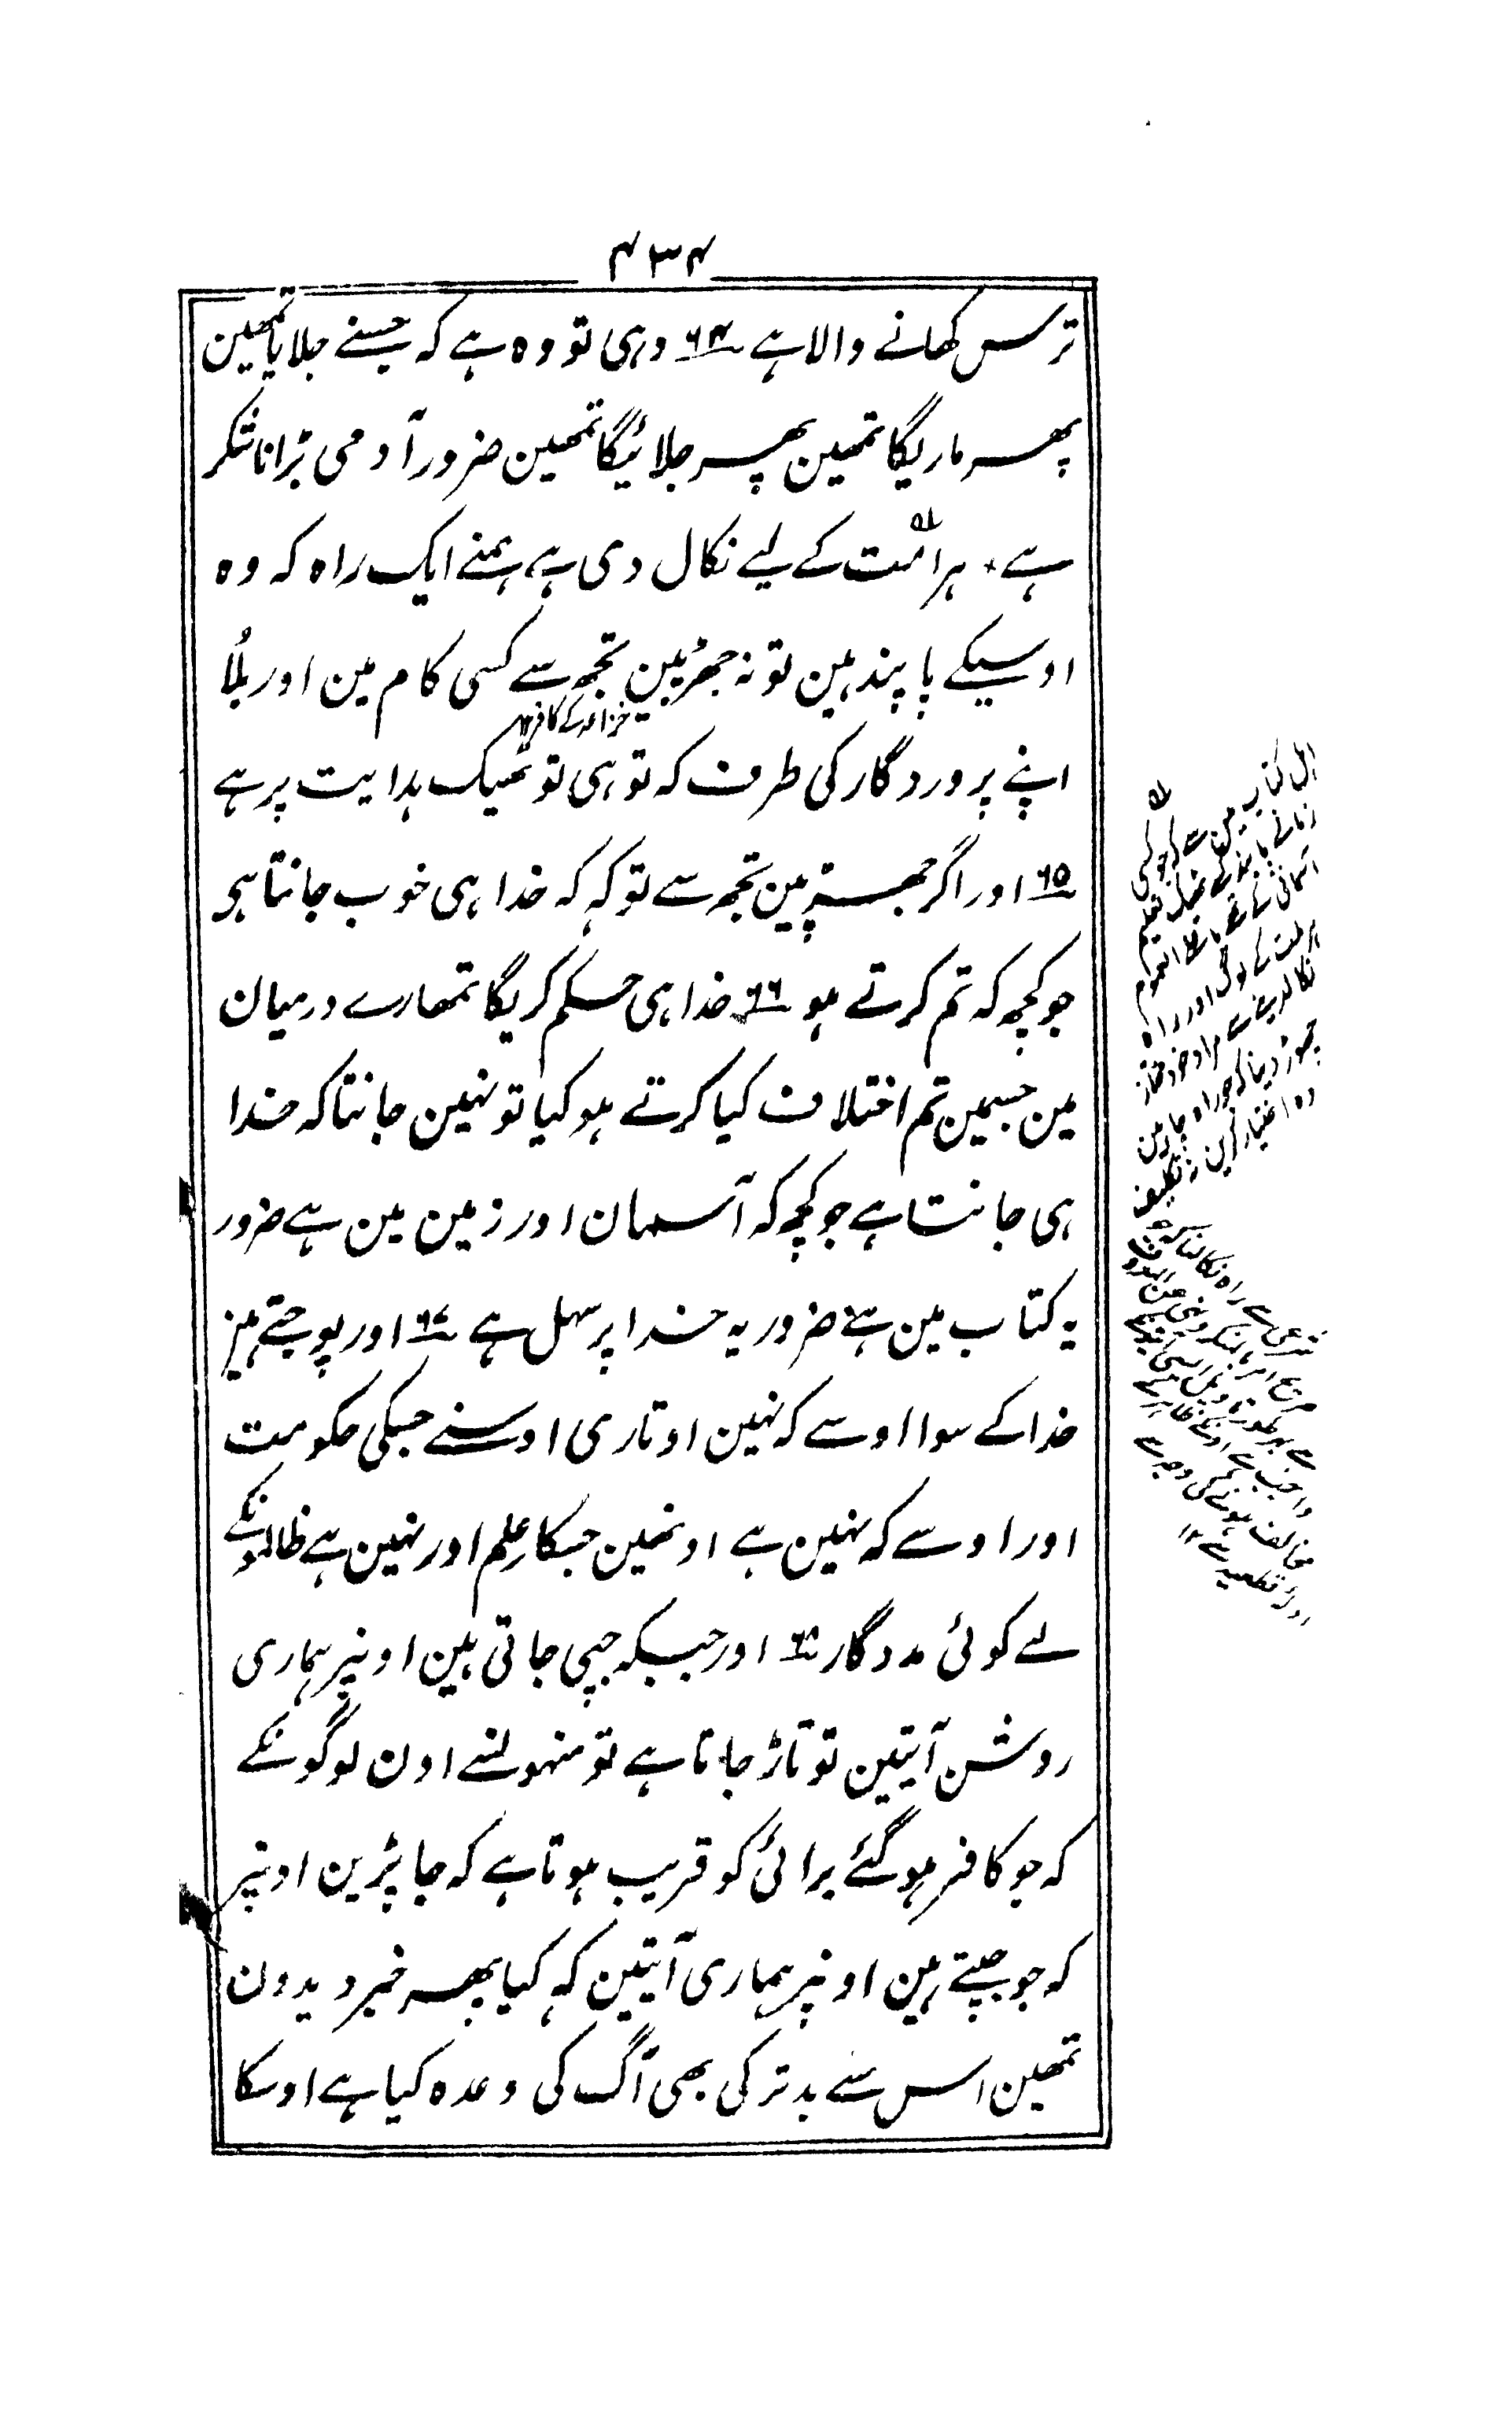 ۴۳۴
ترس کھانے والا ہے ۶۴ وہی تو وہ ہے کہ جسنے جلایا تمھین
پھر ماریگا تمھین پھر جلائیگا تمھین ضرور آدمی بڑا ناشکر
ہے ٭ ہر امّت کے لیے نکال دی ہے ہمنے ایک راہ کہ وہ
اوسیکے پابند ہین تو نہ جھڑپین تجھ سے کسی کام مین اور بُلا
خزاعہ کے کافر ۱۲
اپنے پروردگار کی طرف کہ تو ہی تو ٹھیک ہدایت پر ہے
۶۵ اور اگر جھڑپین تجھ سے تو کہ کہ خدا ہی خوب جانتا ہی
جو کچھ کہ تم کرتے ہو ۶۶ خدا ہی حکم کریگا تمھارے درمیان
مین جسمین تم اختلاف کیا کرتے ہو کیا تو نہین جانتا کہ خدا
ہی جانتا ہے جو کچھ کہ آسمان اور زمین مین ہے ضرور
یہ کتاب مین ہے ضرور یہ خدا پر سہل ہے ۶۷ اور پوجتے ہین
خدا کے سوا اوسے کہ نہین اوتاری اوسنے جسکی حکومت
اور اوسے کہ نہین ہے اونھین جسکا عِلم اور نہین ہے ظالمونکے
لے کوئی مددگار ۶۸ اور جبکہ جپی جاتی ہین اونپر ہماری
روشن آیتین تو تاڑ جاتا ہے تو منھ‌ولنے اون لوگونکے
کہ جو کافر ہو گئے برائی کو قریب ہوتا ہے کہ جا پڑین اونپر
کہ جو جپتے ہین اونپر ہماری آیتین کہ کیا پھر خبر دیدون
تمھین اس سے بدتر کی بھی آگ کی وعدہ کیا ہے اوسکا
اہل کتاب
نکالدینے سے مراد
چھوڑ دینا کہ جو راہ چاہین
وہ اختیار کرین نہ تکلیف
شرعی سے راہ نکالنا
مخالف ہونے کی وجہ سے